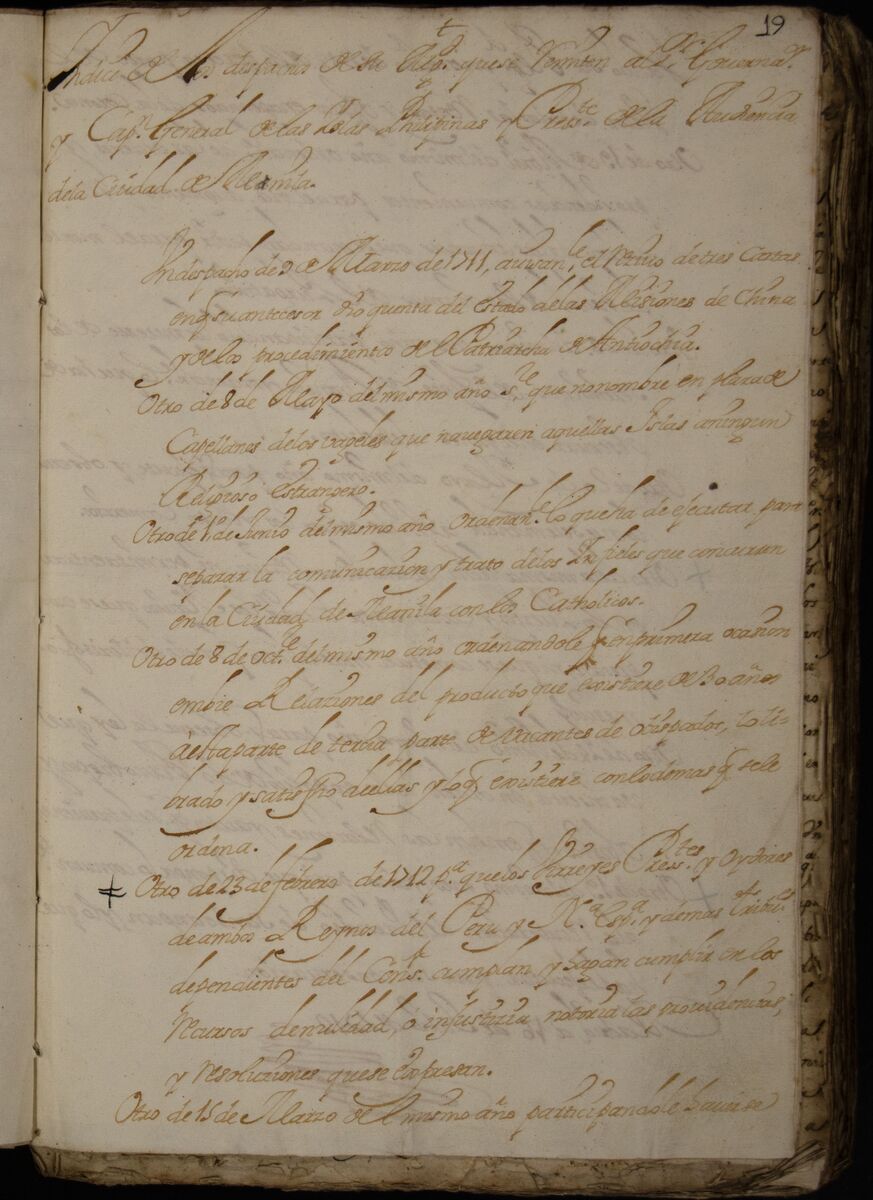 19
Indice de los despachos de su Mag.d que se remiten al S.or Governa.or
y Cap.n General de las Islas Philipinas y Press.te de la Audiencia
de la Ciudad de Manila.
Un despacho de 9 de Marzo de 1711, avisan.le el recivo de tres Cartas
en q su antecesor dio quenta del estado de las Misiones de China
y de los procedimientos de el Patriarcha de Antiochia.
Otro de 8 de Mayo del mismo año s.re que no nombre en plaza de
Capellanes de los vageles que navegaren aquellas Islas a ningun
Religioso estrangero.
Otro de 1.º de Junio del mismo año ordenan.le lo que ha de ejecutar para
separar la comunicazion y trato de los Infieles que concurren
en la Ciudad de Manila con los Catholicos.
Otro de 8 de oct.e del mismo año ordenandole q en primera ocasion
embie Relaziones del producto que existiere de 30 años
a esta parte de tercia parte de vacantes de Obispados, lo li-
brado y satisfho de ellas y lo q existiere con lo demas q se le
ordena.
Otro de 23 de febrero de 1712 p.a que los Virreyes Press.tes y oydores
de ambos Reynos del Peru y N.a Esp.a y demas Tribu.les
dependientes del Cons.o cumplan y hagan cumplir en los
recursos de nulidad, o injusticia notoria las providencias,
y resoluziones que se expresan.
Otro de 15 de Marzo del mismo año participandole haverse